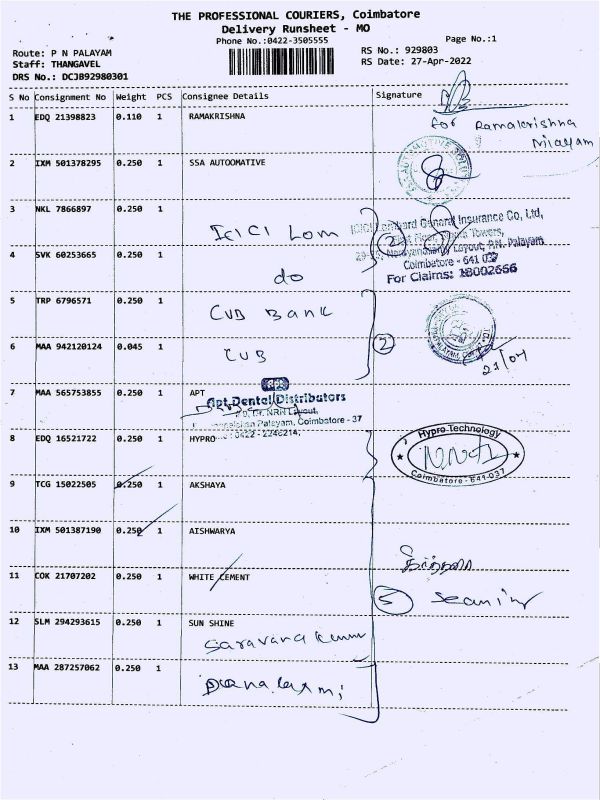 THE PROFESSIONAL COURIERS, Coimbatore
Delivery Runsheet - MO
Phone No.:0422-3505555
Page No.:1
Route: P N PALAYAM
RS No.: 929803
Staff: THANGAVEL
RS Date: 27-Apr-2022
DRS No.: DCJB92980301
S No Consignment No Weight PCS Consignee Details Signature
1 EDQ 21398823 0.110 1 RAMAKRISHNA
for Ramakrishna
Nilayam
2 IXM 501378295 0.250 1 SSA AUTOOMATIVE
3 NKL 7866897 0.250 1
ICICI Lom
ICICI Lombard General Insurance Co, Ltd,
Towers,
Layout, P.N. Palayam
Coimbatore - 641 037
For Claims: 18002666
2
4 SVK 60253665 0.250 1
do
5 TRP 6796571 0.250 1
CUB Bank
6 MAA 942120124 0.045 1
CUB
2
21/04
7 MAA 565753855 0.250 1 APT
Apt
Apt Dental Distributors
NRN Layout,
Palayam, Coimbatore - 37
0422 - 2246214,
8 EDQ 16521722 0.250 1 HYPRO
Hypro Technology
Coimbatore - 641-037
9 TCG 15022505 0.250 1 AKSHAYA
10 IXM 501387190 0.250 1 AISHWARYA
11 COK 21707202 0.250 1 WHITE CEMENT
5
12 SLM 294293615 0.250 1 SUN SHINE
Saravana Kumar
13 MAA 287257062 0.250 1